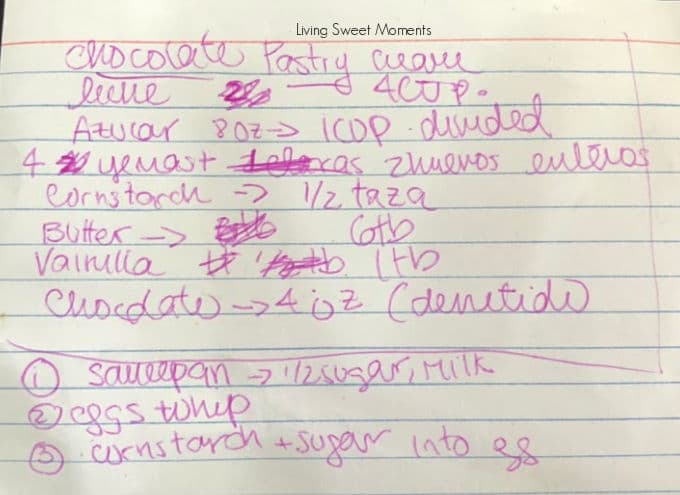 Living Sweet Moments
chocolate Pastry cream
leche → 4 CUP.
Azucar 8oz → 1 CUP. divided
4 yemas + 2 huevos enteros
Cornstarch → 1/2 taza
Butter → 6tb
Vainilla 1tb
Chocolate → 4 oz (derretido)
① saucepan → 1/2 sugar, Milk
② eggs whip
③ cornstarch + sugar into